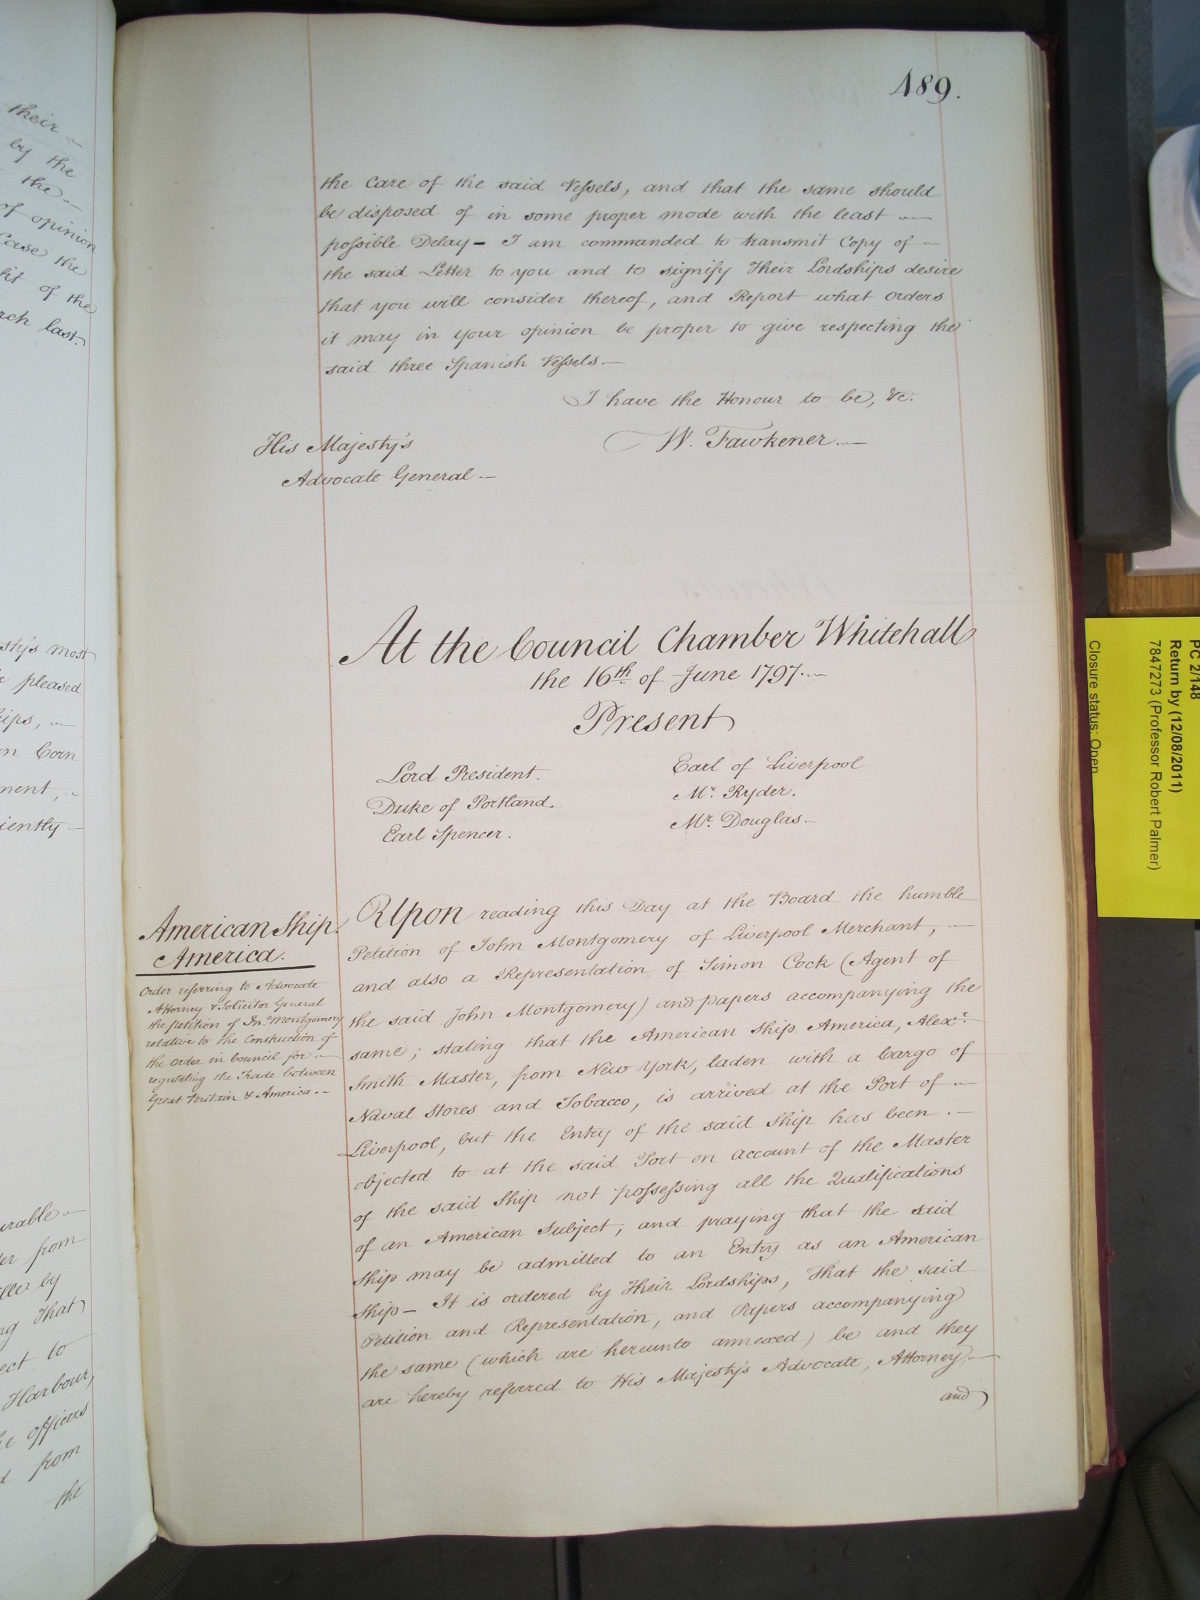 their —
by the
the —
of opinion
Case the
fit of the
rch last.
sty's most
pleased
ips, —
n Corn
ment, —
iently —
urable —
er from
ller by
ng that
ect to
Harbour,
officers
from
the
489.
the Care of the said Vessels, and that the same should
be disposed of in some proper mode with the least —
possible Delay — I am commanded to transmit Copy of —
the said Letter to you and to signify Their Lordships desire
that you will consider thereof, and Report what orders
it may in your opinion be proper to give respecting the
said three Spanish Vessels. —
I have the Honour to be, &c.
His Majesty's
W. Fawkener. —
Advocate General —
At the Council Chamber Whitehall
the 16th. of June 1797. —
Present
Lord President.
Duke of Portland.
Earl Spencer.
Earl of Liverpool
Mr. Ryder.
Mr. Douglas. —
American Ship
America.
Order referring to Advocate
Attorney & Solicitor General
the petition of Jno. Montgomery
relative to the Construction of
the Order in Council for —
regulating the Trade between
Great Britain & America. —
Upon reading this Day at the Board the humble
Petition of John Montgomery of Liverpool Merchant, —
and also a Representation of Simon Cock (Agent of
the said John Montgomery) and papers accompanying the
same; stating that the American Ship America, Alexr.
Smith Master, from New York, laden with a Cargo of
Naval Stores and Tobacco, is arrived at the Port of —
Liverpool, but the Entry of the said Ship has been. —
objected to at the said Port on account of the Master
of the said Ship not possessing all the Qualifications
of an American Subject; and praying that the said
Ship may be admitted to an Entry as an American
Ship — It is ordered by Their Lordships, That the said
Petition and Representation, and Papers accompanying
the same (which are hereunto annexed) be and they
are hereby referred to His Majesty's Advocate, Attorney, —
and
PC 2/148
Return by (12/08/2011)
7847273 (Professor Robert Palmer)
Closure status: Open